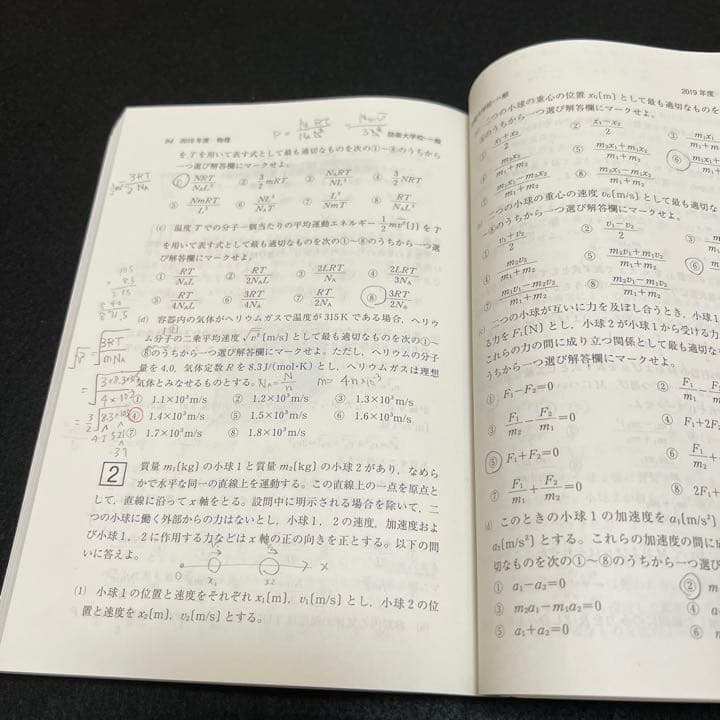 94 2019年度 物理
防衛大学校-一般
をTを用いて表す式として最も適切なものを次の①~⑧のうちから
一つ選び解答欄にマークせよ。
① NRT/N_AL² ② 3/2 mRT ③ N_ART/NL³ ④ 3/2 NRT
⑤ NmRT/L³ ⑥ NL³/N_AT ⑦ L³/NmT ⑧ RT/N_AL³
(c) 温度Tでの分子一個当たりの平均運動エネルギー 1/2 mv²[J]をT
を用いて表す式として最も適切なものを次の①~⑧のうちから一つ選
び解答欄にマークせよ。
① RT/N_AL ② RT/2N_AL ③ 2LRT/N_A ④ 2LRT/3N_A
⑤ RT/4N_AL ⑥ 3RT/4N_A ⑦ RT/2N_A ⑧ 3RT/2N_A
(d) 容器内の気体がヘリウムガスで温度が315Kである場合、ヘリウ
ム分子の二乗平均速度√v²[m/s]として最も適切なものを次の①~
⑧のうちから一つ選び解答欄にマークせよ。ただし、ヘリウムの分子
量を4.0、気体定数Rを8.3J/(mol·K)とし、ヘリウムガスは理想
気体とみなせるものとする。
① 1.1×10³m/s ② 1.2×10³m/s ③ 1.3×10³m/s
④ 1.4×10³m/s ⑤ 1.5×10³m/s ⑥ 1.6×10³m/s
⑦ 1.7×10³m/s ⑧ 1.8×10³m/s
2 質量m₁[kg]の小球1と質量m₂[kg]の小球2があり、なめら
かで水平な同一の直線上を運動する。この直線上の一点を原点と
して、直線に沿ってx軸をとる。設問中に明示される場合を除いて、二
つの小球に働く外部からの力はないとし、小球1、2の速度、加速度およ
び小球1、2に作用する力などはx軸の正の向きを正とする。以下の問
いに答えよ。
0 x₁ x₂ x
(1) 小球1の位置と速度をそれぞれx₁[m]、v₁[m/s]とし、小球2の位
置と速度をx₂[m]、v₂[m/s]とする。
2019年度
二つの小球の重心の位置x₀[m]として最も適切なものを
のうちから一つ選び解答欄にマークせよ。
① x₁+x₂/2 ② x₁-x₂/2 ③
④ m₂x₂/m₁+m₂ ⑤ m₂x₁+m₁x₂/m₁+m₂ ⑥
⑦ m₁x₁-m₂x₂/m₁+m₂ ⑧ m₂x₁-m₁x₂/m₁+m₂
二つの小球の重心の速度v₀[m/s]として最も適切な
⑧のうちから一つ選び解答欄にマークせよ。
① v₁+v₂/2 ② v₁-v₂/2
④ m₂v₂/m₁+m₂ ⑤ m₂v₁+m₁v₂/m₁+m₂ ⑥
⑦ m₁v₁-m₂v₂/m₁+m₂ ⑧ m₂v₁-m₁v₂/m₁+m₂
二つの小球が互いに力を及ぼし合うとき、小球1
る力をF₁[N]とし、小球2が小球1から受ける力
これらの力の間に成り立つ関係として最も適
ら一つ選び解答欄にマークせよ。
① F₁-F₂=0 ②
③ F₁/m₂-F₂/m₁=0 ④ F₁+2F
⑤ F₁+F₂=0 ⑥
⑦ F₁/m₁+F₂/m₂=0 ⑧ 2F₁+
(d) このときの小球1の加速度をa₁[m/s
a₂[m/s²]とする。これらの加速度の間に成
切なものを次の①~⑧のうちから一つ選び
① a₁-a₂=0 ②
③ m₂a₁-m₁a₂=0 ④
⑤ a₁+a₂=0 ⑥